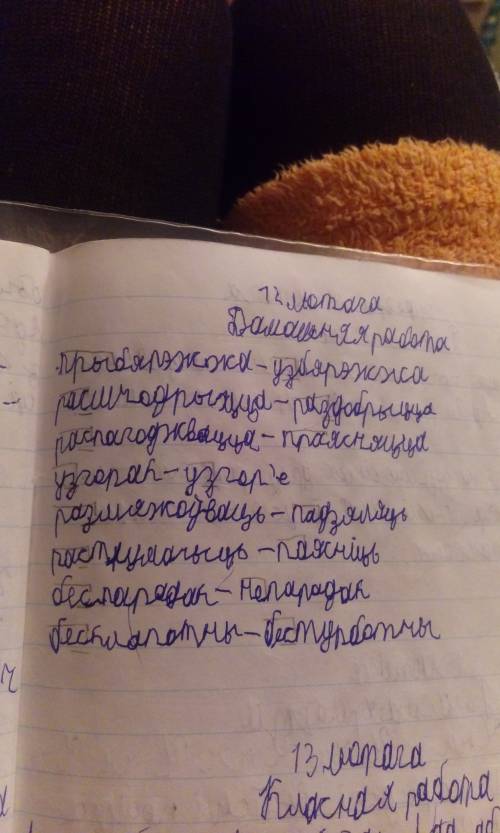 12 лютага
Дамашняя работа
прыбярэжжа - узбярэжжа
расшчодрыцца - раздобрыцца
распагоджвацца - праясняцца
узгорак - узгор'е
размяжоўваць - падзяліць
растлумачыць - паясніць
беспарадак - непарадак
бесклапотны - бестурботны
13 лютага
Класная работа